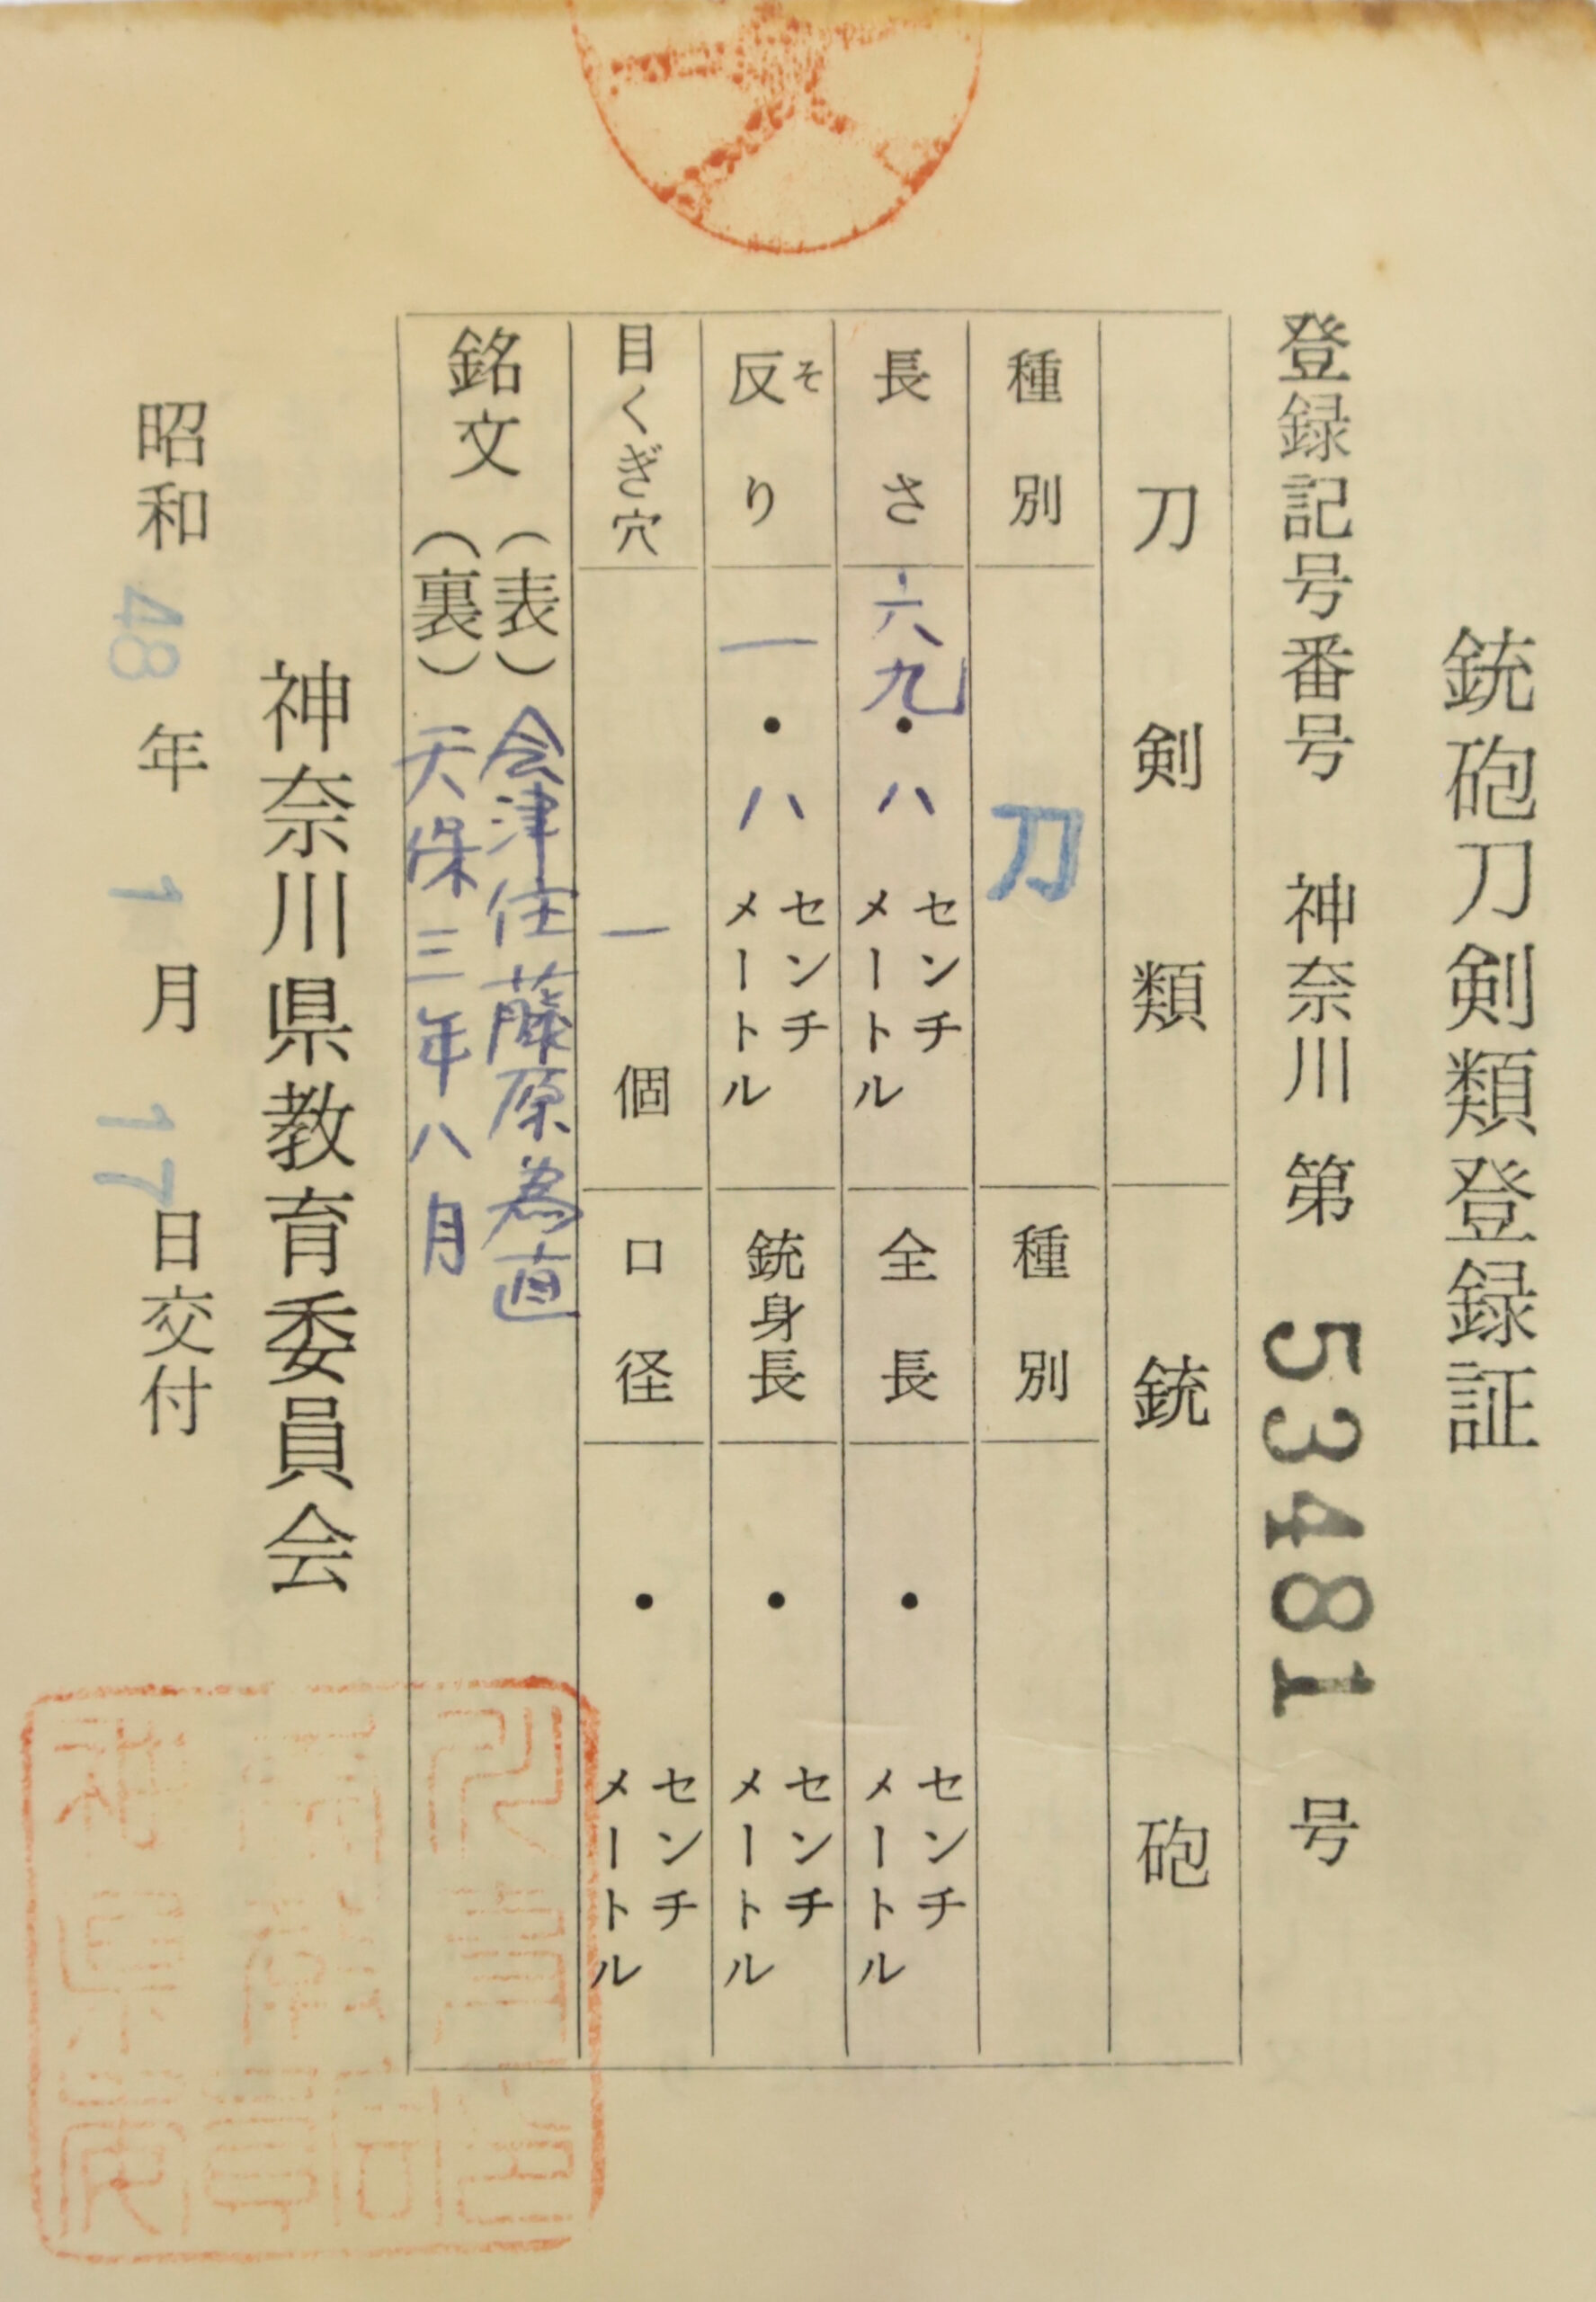 銃砲刀剣類登録証
登録記号番号 神奈川 第 53481 号
刀剣類 銃砲
種別 刀 種別
長さ 六九・八 センチメートル 全長 ・ センチメートル
反り そ 一・八 センチメートル 銃身長 ・ センチメートル
目くぎ穴 一 個 口径 ・ センチメートル
銘文 (表) 会津住藤原為直
(裏) 天保三年八月
神奈川県教育委員会
昭和 48 年 1 月 17 日交付